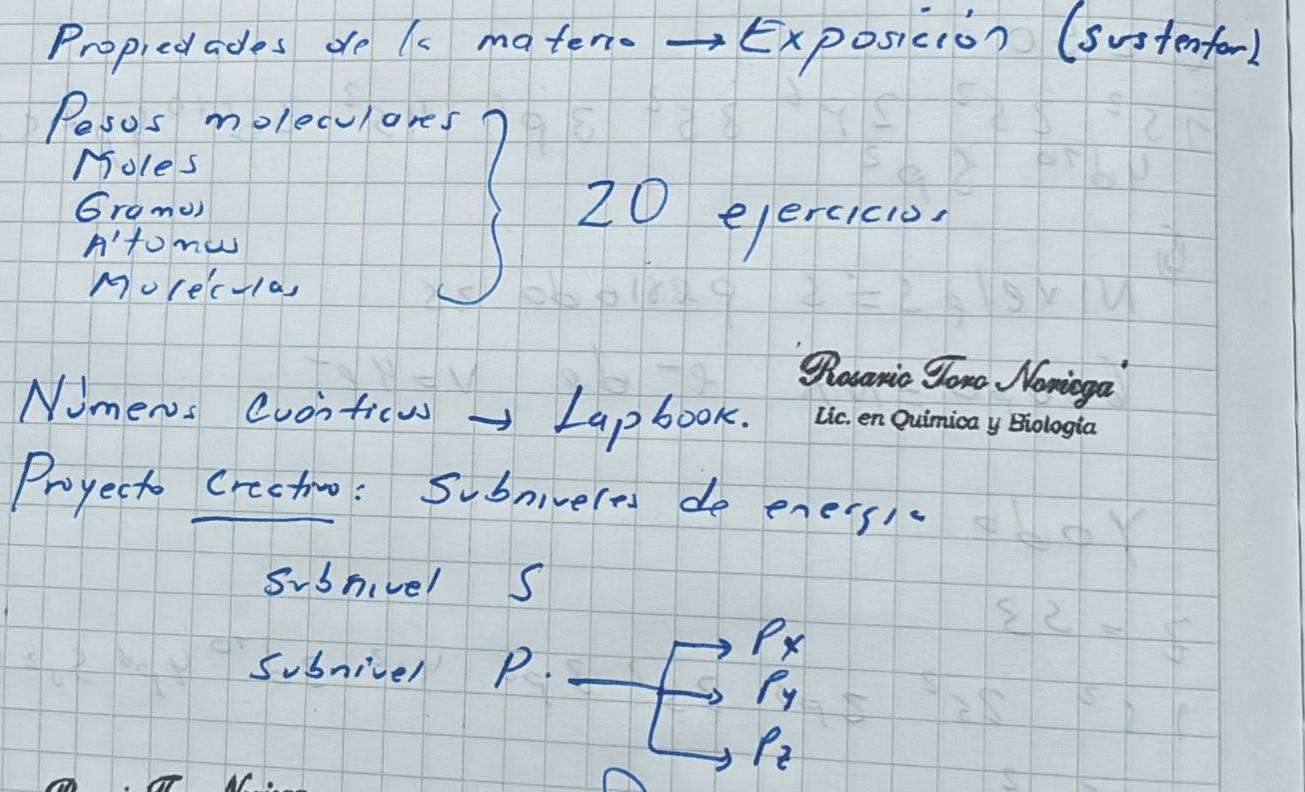 Propiedades de la materia → Exposición (sustentar)
Pesos moleculares
Moles
Gramos
Átomos
Moléculas
20 ejercicios
Rosario Toro Noriega
Lic. en Química y Biología
Números Cuánticos → Lapbook.
Proyecto Creativo: Subniveles de energía
Subnivel S
Subnivel P. → Px
Py
Pz